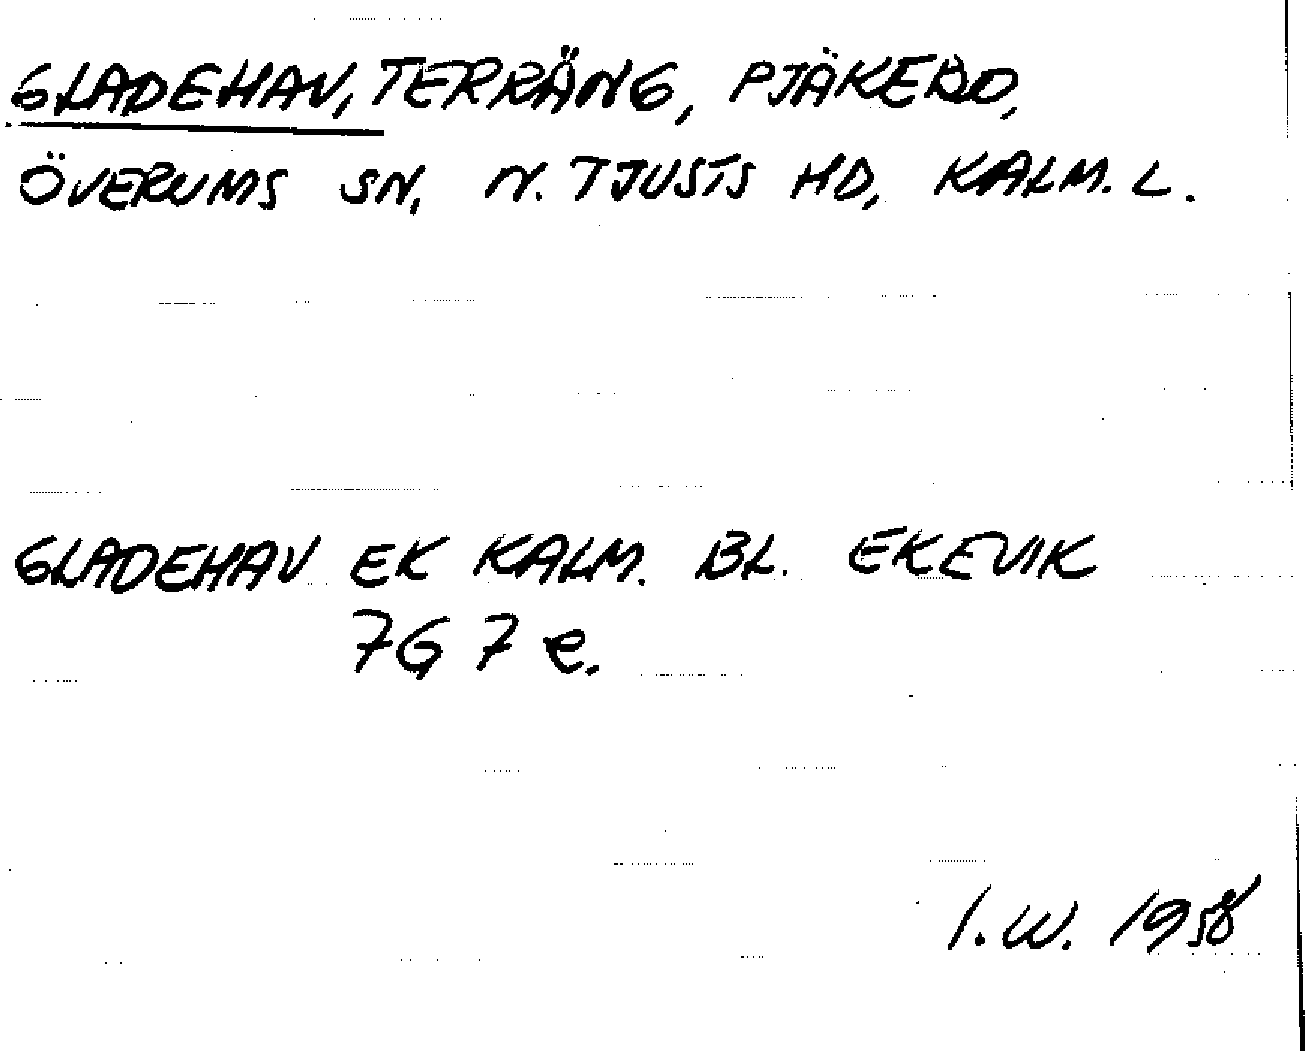 GLADEHAV, TERRÄNG, PJÄKEBO,
ÖVERUMS SN, N. TJUSTS HD, KALM. L.
GLADEHAV EK KALM. BL. EKEVIK
7G 7 e.
I. W. 1958